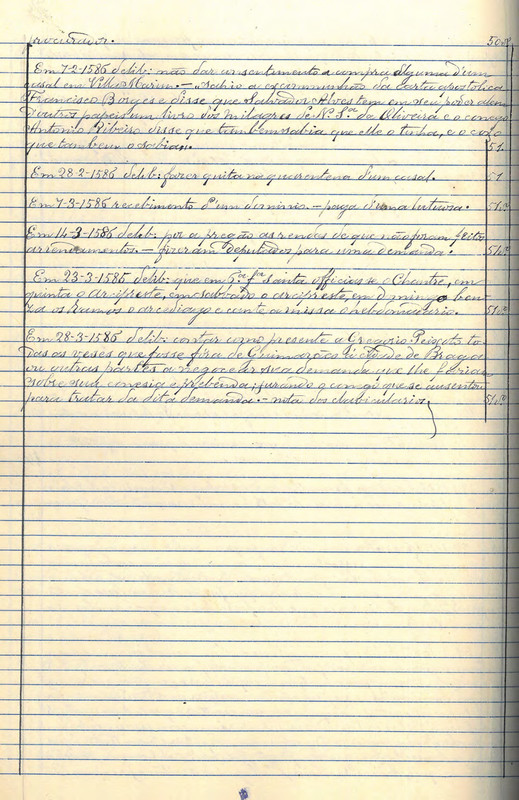 procurador. 50 v.
Em 7-2-1586 delib: não dar consentimento a compra alguma d'um
casal em Villa Marim. — sahiu a excommunhão da carta apostolica
Francisco Borges e disse que Salvador Alves tem em seu poder alem
d'outros papeis um livro dos milagres de N. S.ª da Oliveira e o conego
Antonio Ribeiro disse que tambem sabia, que elle o tinha, e o
que tambem o sabia. 51.
Em 28-2-1586 delib: fazer quita na quarentena d'um casal. 51
Em 7-3-1586 recebimento d'um dominio. — paga d'uma luctuosa. 51.v
Em 14-3-1586 delib: pôr a pregão as rendas de que não foram feitos
arrendamentos. — fizeram deputados para uma demanda. 51.v
Em 23-3-1586 delib: que em 5.ª fr.ª santa officiasse o Chantre, em
quinta o arcipreste, em sabbado o arcipreste, em domingo ben-
za os ramos o arcediago e cante a missa o hebdomadario. 51.v
Em 28-3-1586 delib: contar como presente a Gregorio Peixoto to-
das as veses que fosse fóra de Guimarães á cidade de Braga
ou outras partes a negocear sua demanda que lhe faziam
sobre sua conesia e prebenda, jurando o conego que se ausentou
para tratar da dita demanda. — nota dos cubicularios. 51.v